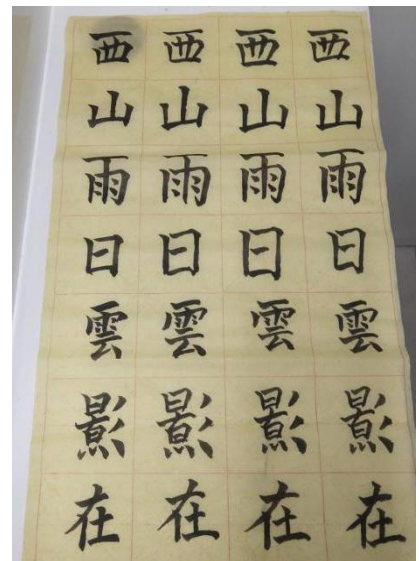 西西西西
山山山山
雨雨雨雨
日日日日
雲雲雲雲
影影影影
在在在在